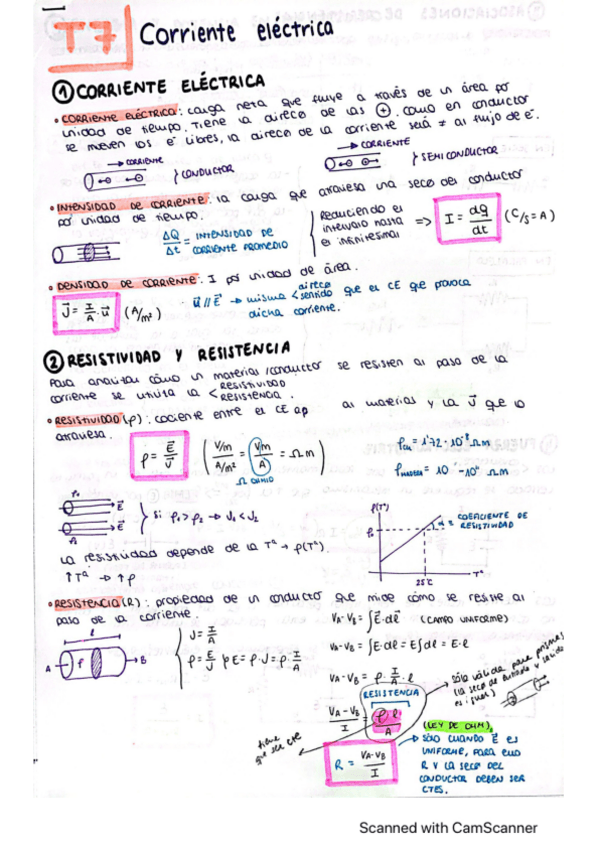 T7 Corriente eléctrica
① CORRIENTE ELÉCTRICA
• CORRIENTE ELÉCTRICA: carga neta que fluye a través de un área por
unidad de tiempo. Tiene la direcc de las ⊕. Como en conductor
se mueven los e⁻ libres, la direcc de la corriente será ≠ al flujo de e⁻.
→ CORRIENTE } CONDUCTOR
→ CORRIENTE } SEMICONDUCTOR
• INTENSIDAD DE CORRIENTE: la carga que atraviesa una secc del conductor
por unidad de tiempo.
ΔQ/Δt = INTENSIDAD DE CORRIENTE PROMEDIO
Reduciendo el
intervalo hasta
el infinitesimal
=> I = dQ/dt (C/s = A)
• DENSIDAD DE CORRIENTE: I por unidad de área.
J = I/A · u (A/m²)
u // E → misma < direcc sentido que el CE que provoca
dicha corriente.
② RESISTIVIDAD Y RESISTENCIA
Para analizar cómo un material/conductor se resisten al paso de la
corriente se utiliza la < RESISTIVIDAD
RESISTENCIA.
• RESISTIVIDAD (ρ): cociente entre el CE ap al material y la J que lo
atraviesa.
ρ = E/J
( V/m / A/m² = Vm/A = Ω m )
Ω OHMIO
ρCu = 1'72 · 10⁻⁸ Ω m
ρ₁ → E
→ E
A
} Si ρ₁ > ρ₂ → J₁ < J₂
ρ(Tª)
ρ₀
α = COEFICIENTE DE
RESISTIVIDAD
25ºC
Tª
La resistividad depende de la Tª → ρ(Tª)
↑Tª → ↑ρ
• RESISTENCIA (R): propiedad de un conductor que mide cómo se resiste al
paso de la corriente
l
A ρ B
J = I/A
ρ = E/J
ρE = ρ·J = ρ·I/A
VA - VB = ∫E·dl (CAMPO UNIFORME)
VA - VB = ∫E·dl = E∫dl = E·l
VA - VB = ρ · I/A · l
RESISTENCIA
VA - VB / I = ρ l / A
→ sólo válida para prismas
es igual)
tiene
que ser cte
R = VA-VB / I
(LEY DE OHM)
SÓLO CUANDO E ES
UNIFORME, PARA ELLO
R Y LA SECC DEL
CONDUCTOR DEBEN SER
CTES.
Scanned with CamScanner